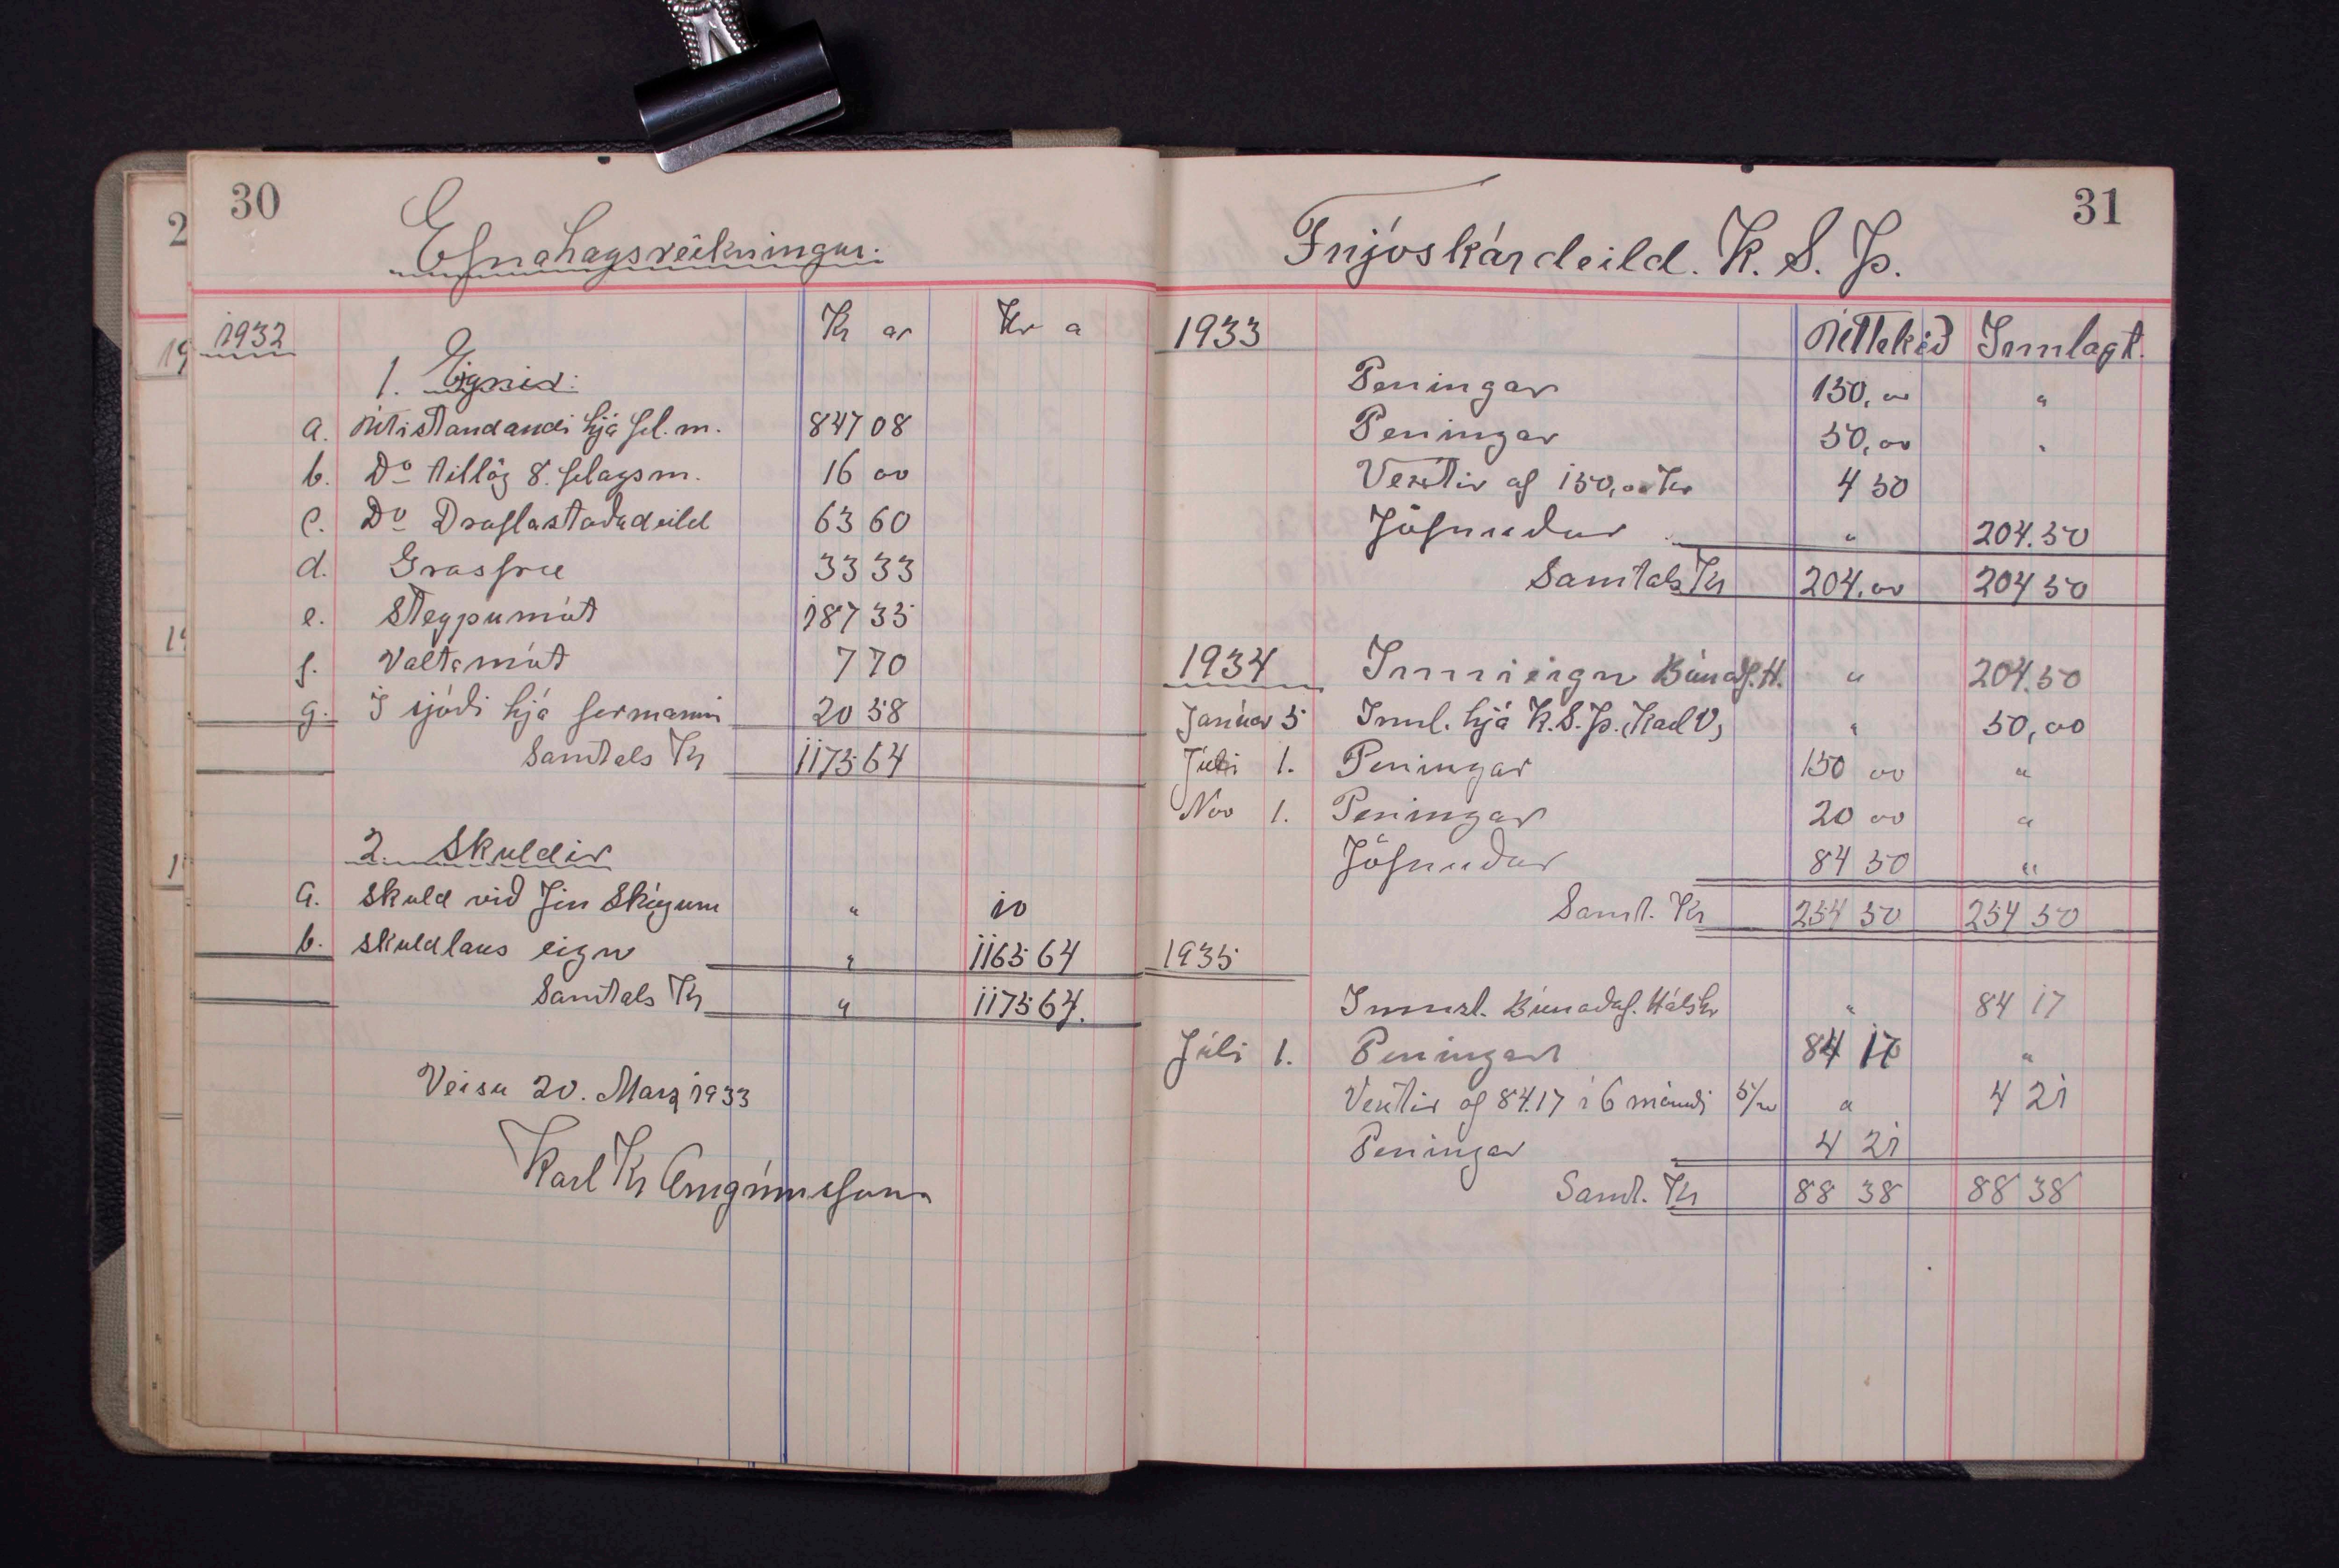 30
Efnahagsreikningur.
1932
Kr ar Kr a
1. Eignir:
a. Útistandandi hjá fél.m. 847 08
b. Do tillög 8. félagsm. 16 00
c. Do Draflastaðadeild 63 60
d. Grasfræ 33 33
e. Steypumót 187 35
f. Valtamót 7 70
g. Í sjóði hjá formanni 20 58
Samtals Kr 1175 64
2. Skuldir
a. Skuld við Jón Skógum " 10
b. Skuldlaus eign " 1165 64
Samtals Kr " 1175 64.
Veisu 20. Marz 1933
Karl Kr Arngrímsson
31
Fnjóskárdeild. K. S. Þ.
1933 Úttekið Innlagt.
Peningar 150,00 "
Peningar 50,00 "
Vextir af 150,00 Kr 4 50
Jöfnuður " 204.50
Samtals Kr 204,00 204 50
1934 Inneign Búnaðf. H. " 204.50
Janúar 5 Innl. hjá K.S.Þ. " 50,00
Júli 1. Peningar 150 00 "
Nov 1. Peningar 20 00 "
Jöfnuður 84 50 "
Samt. Kr 254 50 254 50
1935
Búnaðaf. Hálshr " 84 17
Júli 1. Peningar 84 17 "
Vextir af 84.17 í 6 mánuði 5% " 4 21
Peningar 4 21
Samt. Kr 88 38 88 38